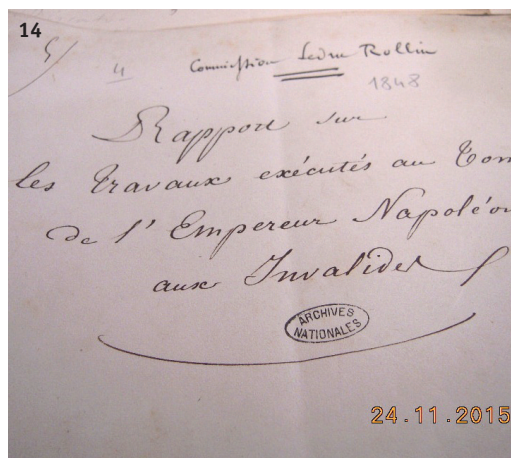 14
4
Commission Ledru Rollin
1848
Rapport sur
les travaux exécutés au Tom
de l'Empereur Napoléon
aux Invalides
ARCHIVES
NATIONALES
24.11.2015